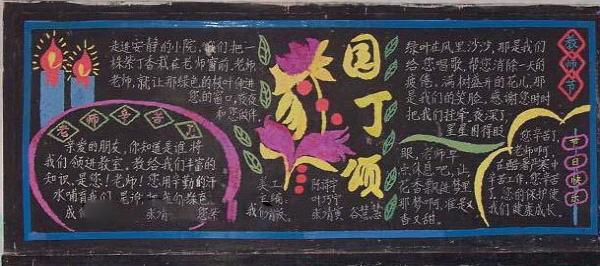 园丁颂
教师节
走进安静的小院,我们把一
株紫丁香栽在老师窗前,老师
老师,就让那绿色的枝叶伸进
您的窗口,夜夜
和您做伴。
老师辛苦了
亲爱的朋友,你知道是谁将
我们领进教室,教给我们丰富的
知识,是您!老师!您用辛勤的汗
水哺育我们
绿叶在风里沙沙,那是我们
给您唱歌,帮您消除一天的
疲倦。满树盛开的花儿,那
是我们的笑脸,感谢您时时
把我们挂牵,夜深了,
星星困得眨
眼,老师早
点休息吧,让
花香飘进梦里
那梦啊,准是又
香又甜。
美工
主编
节日快乐
您辛苦了,
老师啊,
在酷暑严寒中
辛苦工作,您辛苦
了,您的保护使
我们健康成长。